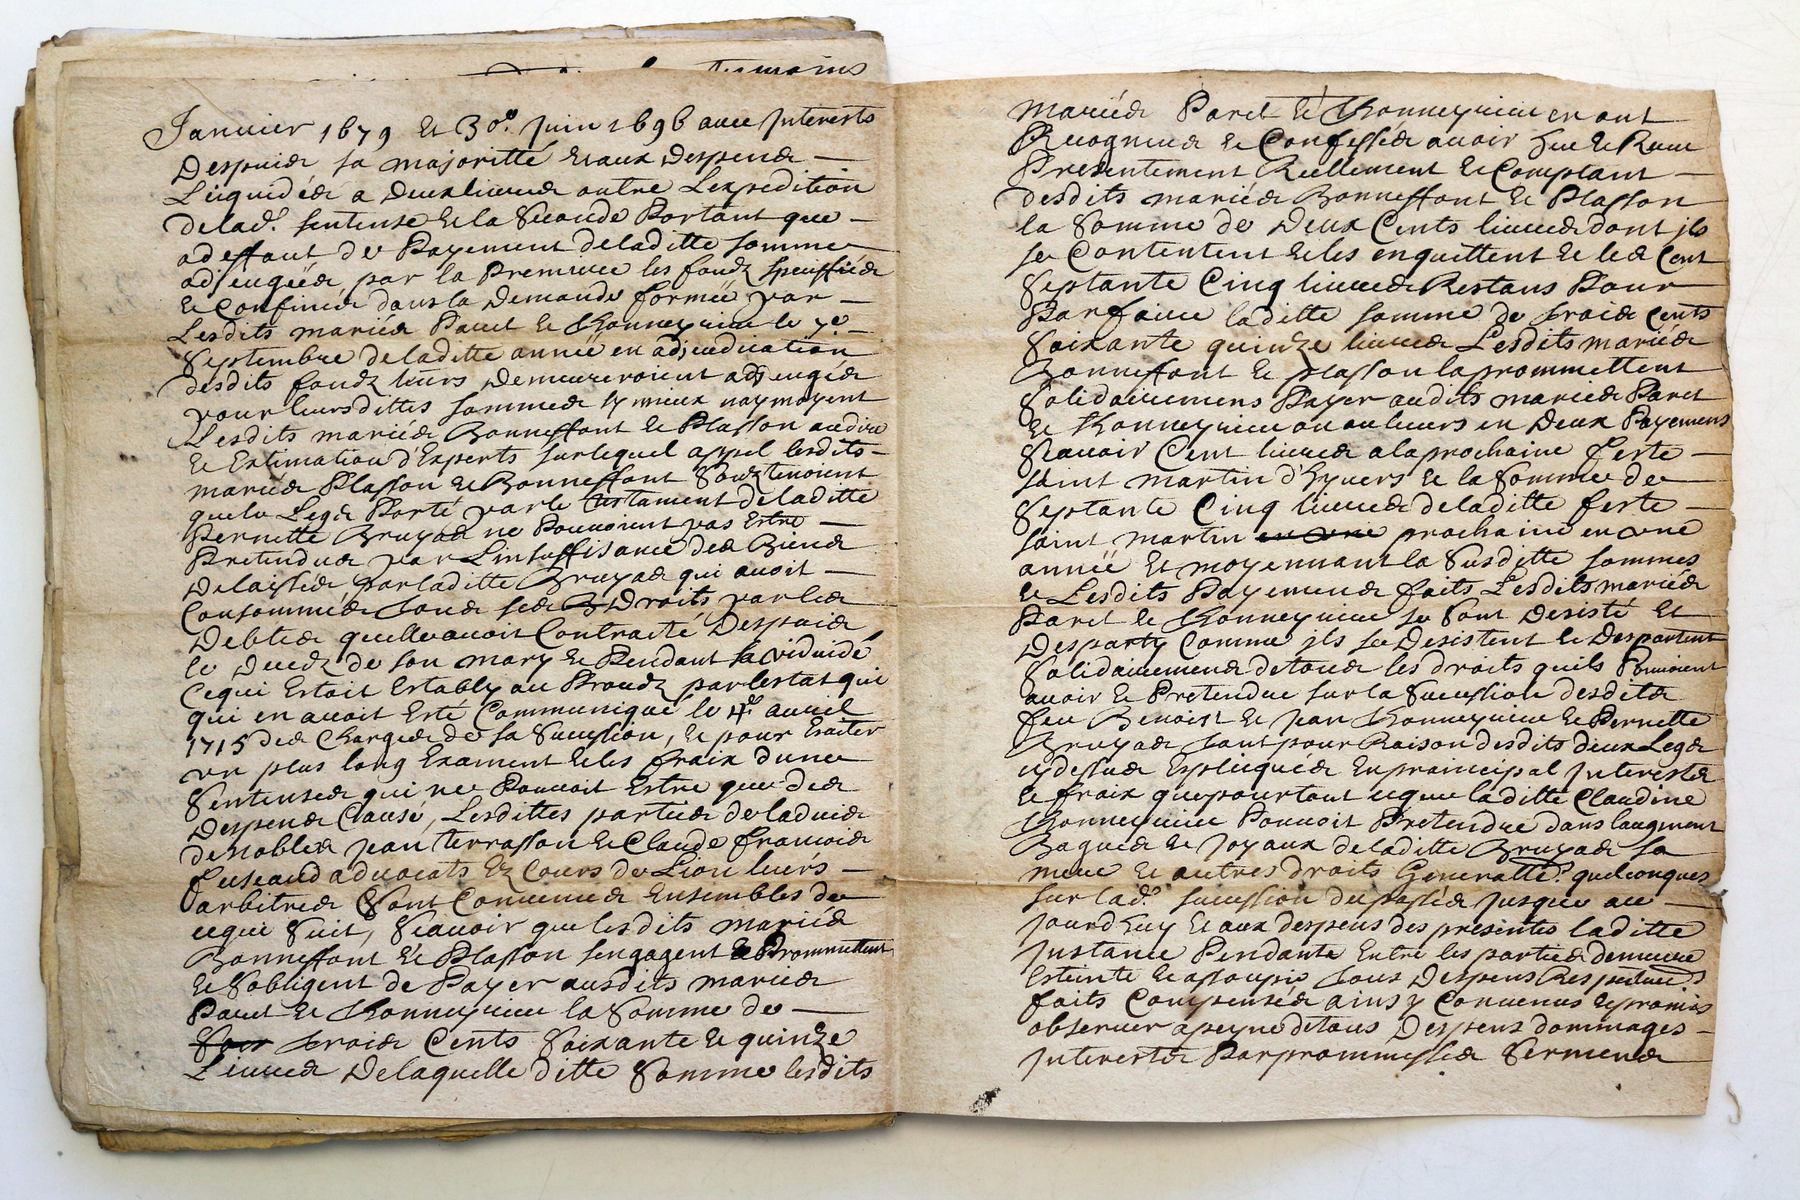 Janvier 1679 et 30e. Juin 1696 avec Interests
Despuids sa majoritté et aux Despends
Liquidéés a Deux livres outre Lexpedition
de lad. sentense et la Seconde Portant que
a deffaut de Payement de laditte somme
adjeugéé, par la Premiere les fondz speciffiéés
et Confinés dans la Demande formeé par
Lesdits mariés Paret et Thonneyrieu le 7e.
Septembre de laditte anneé en adjeudication
desdits fondz leurs Demeureroient adjeugés
pour leursdittes sommes sy mieux naymoyent
Lesdits mariés Bonneffont et Plasson au dire
et Estimation d'Experts sur lequel appel lesdits
mariés Plasson et Bonneffont Soutenoient
que le Legs Porté par le testament de laditte
Pernette Bruyas ne Pouvoient pas Estre
Pretendus par Linsuffisance des Biens
Delaissés par laditte Bruyas qui avoit
Consommés tous ses Droits par les
Debtes quelle avoit Contracté Despuids
le Decedz de son mary et Pendant sa viduidé
Ce qui Estoit Estably au Procedz par lestat qui
qui en avoit Esté Communiqué le 4e avril
1715 des Charges de sa Sucession, et pour Eviter
un plus long Exament et les fraix dune
Sentense qui ne Pouvoit Estre que des
Despens Causé, Lesdittes parties de laduis
de Nobles Jean terrasson et Claude François
aduocats Ez Cours de Lion leurs
arbitres Sont Convenues Ensembles de
ce qui Suit, Scavoir que lesdits mariés
Bonneffont et Plasson sengagent et Prommettent
et Sobligent de Payer ausdits mariés
Paret et Thonneyrieu la Somme de
trois Cents Soixante et quinze
Livres De laquelle ditte Somme lesdits
mariés Paret et Thonneyrieu en ont
Recogneus et Confessés avoir heu et Receu
Presentement Reellement et Comptant
desdits mariés Bonneffont et Plasson
la Somme de Deux Cents livres dont ils
se Contentent et les enquittent et les Cent
Septante Cinq livres Restans Pour
Parfaire laditte somme de trois cents
Soixante quindze livres Lesdits mariés
Bonneffont et plasson la prommettent
Solidairemens Payer audits mariés Paret
et Thonneyrieu ou au leurs en Deux Payemens
Scavoir Cent livres a la prochaine feste
saint martin d'hyvers et la Somme de
Septante Cinq livres de laditte feste
saint martin en une prochaine en une
anneé et moyennant la Susditte sommes
et Lesdits Payemens faits Lesdits mariés
Paret et Thonneyrieu se sont Desisté et
Desparty Comme ils se Desistent et Despartent
Solidairemens de tous les droits quils Pouvoient
avoir et Pretendre sur la Sucession desdits
feu Benoist et Jean Thonneyrieu et Pernette
Bruyas tant pour Raison desdits deux Legs
cy dessus Expliequés En prainicipal Interests
et fraix que pour tout ce que laditte Claudine
Thonneyrieu Pouvoit Pretendre dans laugment
Bagues et Joyaux de laditte Bruyas sa
mere et autres droits Generatte. quelconques
sur lad. sucession du passés jusques au
jourdhuy Et aux despens des presentes laditte
Instance Pendante Entre les parties demeure
Esteinte et assoupie tous Despens Respectives
faits Compensés ainsy Convenus et promis
observer a peyne de tous Despens dommages
Interests Par prommesses Sermens